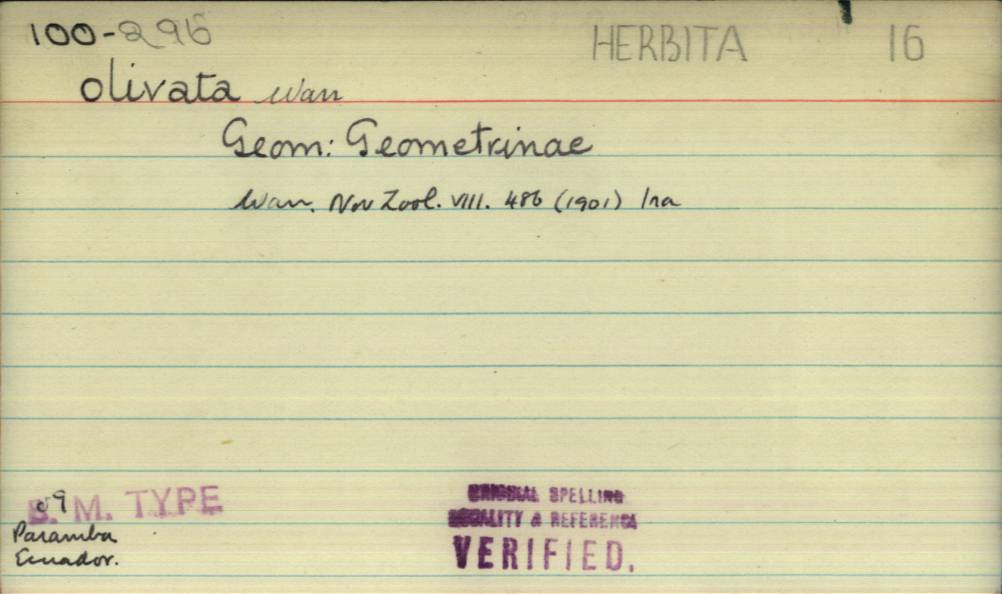 100-296
HERBITA 16
olivata Warr
Geom: Geometrinae
Warr. Nov Zool. VIII. 486 (1901) Ina
B. M. TYPE
Paramba
Ecuador.
ORIGINAL SPELLING
LOCALITY & REFERENCE
VERIFIED.